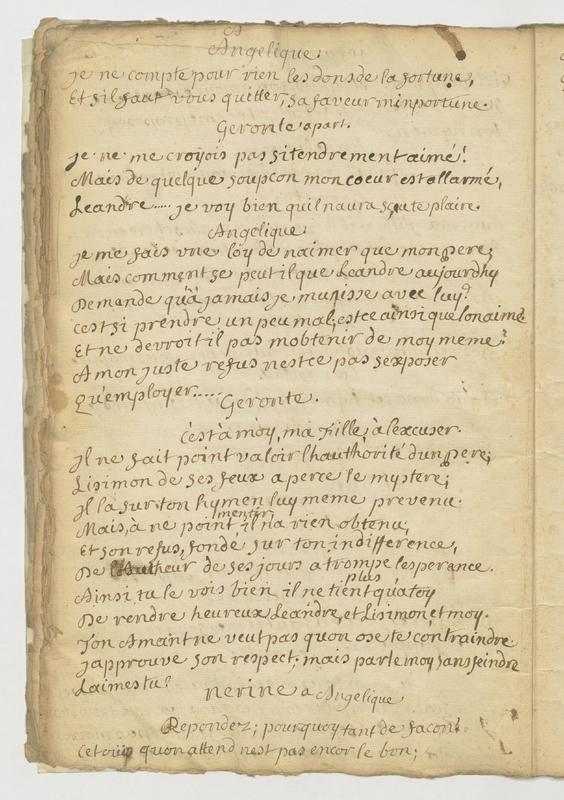 Angelique.
je ne compte pour rien les dons de la fortune,
Et s'il faut vous quitter, sa faveur m'inportune.
Geronte apart.
je ne me croyois pas si tendrement aimé!
Mais de quelque soupçon mon coeur est allarmé,
Leandre..... je voy bien quil naura sçu te plaire.
Angelique.
je me fais une loy de naimer que mon pere;
Mais comment se peut il que Leandre aujourdhy
Demande qu'à jamais je munisse avec luy?
cest si prendre un peu mal, est ce ainsi que lon aime
Et ne devroit il pas mobtenir de moy meme?
A mon juste refus nest ce pas sexposer
Qu'employer.....
Geronte.
C'est à moy, ma fille, à lexcuser.
Il ne fait point valoir lhauthorité dun pere;
Lisimon de ses feux a percé le mystere;
Il la sur ton hymen luy meme prevenu.
Mais, à ne point mentir, il na rien obtenu,
Et son refus, fondé sur ton indifference,
De lautheur de ses jours a trompé lesperance.
Ainsi tu le vois bien il ne tient plus qu'à toy
De rendre heureux Leandre, et Lisimon, et moy.
Ton Amant ne veut pas quon ose te contraindre
japprouve son respect; mais parle moy sans feindre
Laimes tu?
nerine a Angelique
Repondez; pourquoy tant de facon?
Cet ouy quon attend nest pas encor le bon;